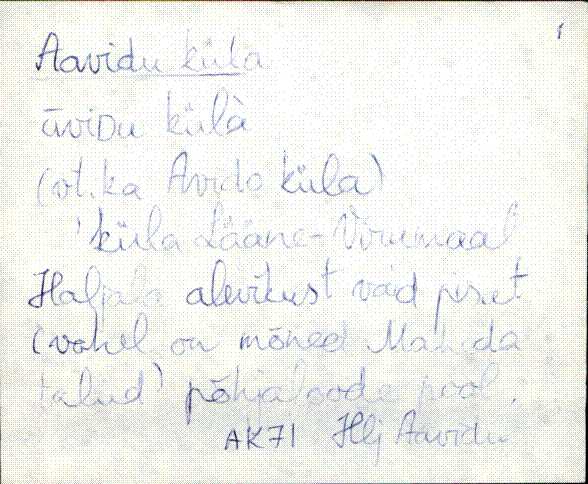 1
Aavidu küla
āviDu külà
(vt. ka Avido küla)
'küla Lääne-Virumaal
Haljala alevikust vaid pisut
(vahel on mõned
talud) põhjaloode pool.
AK71 Hlj Aavidu